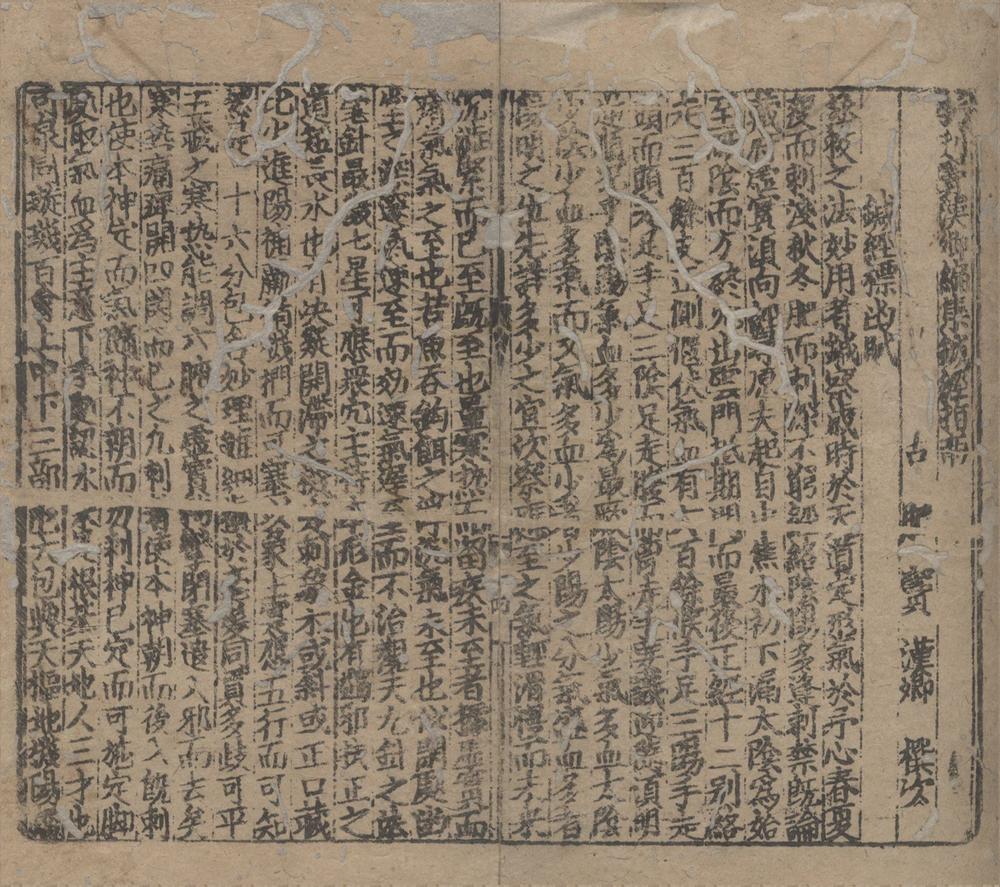 新刊竇漢卿編集鍼經指南
古肥 竇 漢卿 撰次
鍼經標幽賦
拯救之法妙用者鍼察歲時於天道定形氣於予心春夏
瘦而刺淺秋冬肥而刺深不窮經絡陰陽多逢刺禁既論
臟腑虛實須向經尋原夫起自中焦水初下漏太陰爲始
至厥陰而方終穴出雲門抵期門而最後正經十二別絡
走三百餘支正側偃伏氣血有六百餘候手足三陽手走
頭而頭走足手足三陰足走腹而胸走手要識迎隨須明
逆順況乎陰陽氣血多少爲最厥陰太陽少氣多血太陰
少陰少血多氣而又氣多血少者少陽之分氣盛血多者
陽明之位先詳多少之宜次察應至之氣輕滑慢而未來
沉澁緊而已至既至也量寒熱而留疾未至者據虛實而
痏氣氣之至也若魚吞鈎餌之浮沉氣未至也似閉處幽
堂之深邃氣速至而効速氣遲至而不治觀夫九針之法
毫針最微七星可應眾穴主持本形金也有蠲邪扶正之
道短長水也有決凝開滯之機定刺象木或斜或正口藏
比火進陽補羸循機捫而可塞以象土實應五行而可知
然是一寸六分包含妙理雖細楨於毫髮同貫多歧可平
五臟之寒熱能調六腑之虛實拘攣閉塞遣八邪而去矣
寒熱痛痹開四關而已之凡刺者使本神朝而後入既刺
也使本神定而氣隨神不朝而勿刺神已定而可施定脚
處取氣血爲主意下手處認水木是根基天地人三才也
涌泉同璇璣百會上中下三部也大包與天樞地機陽